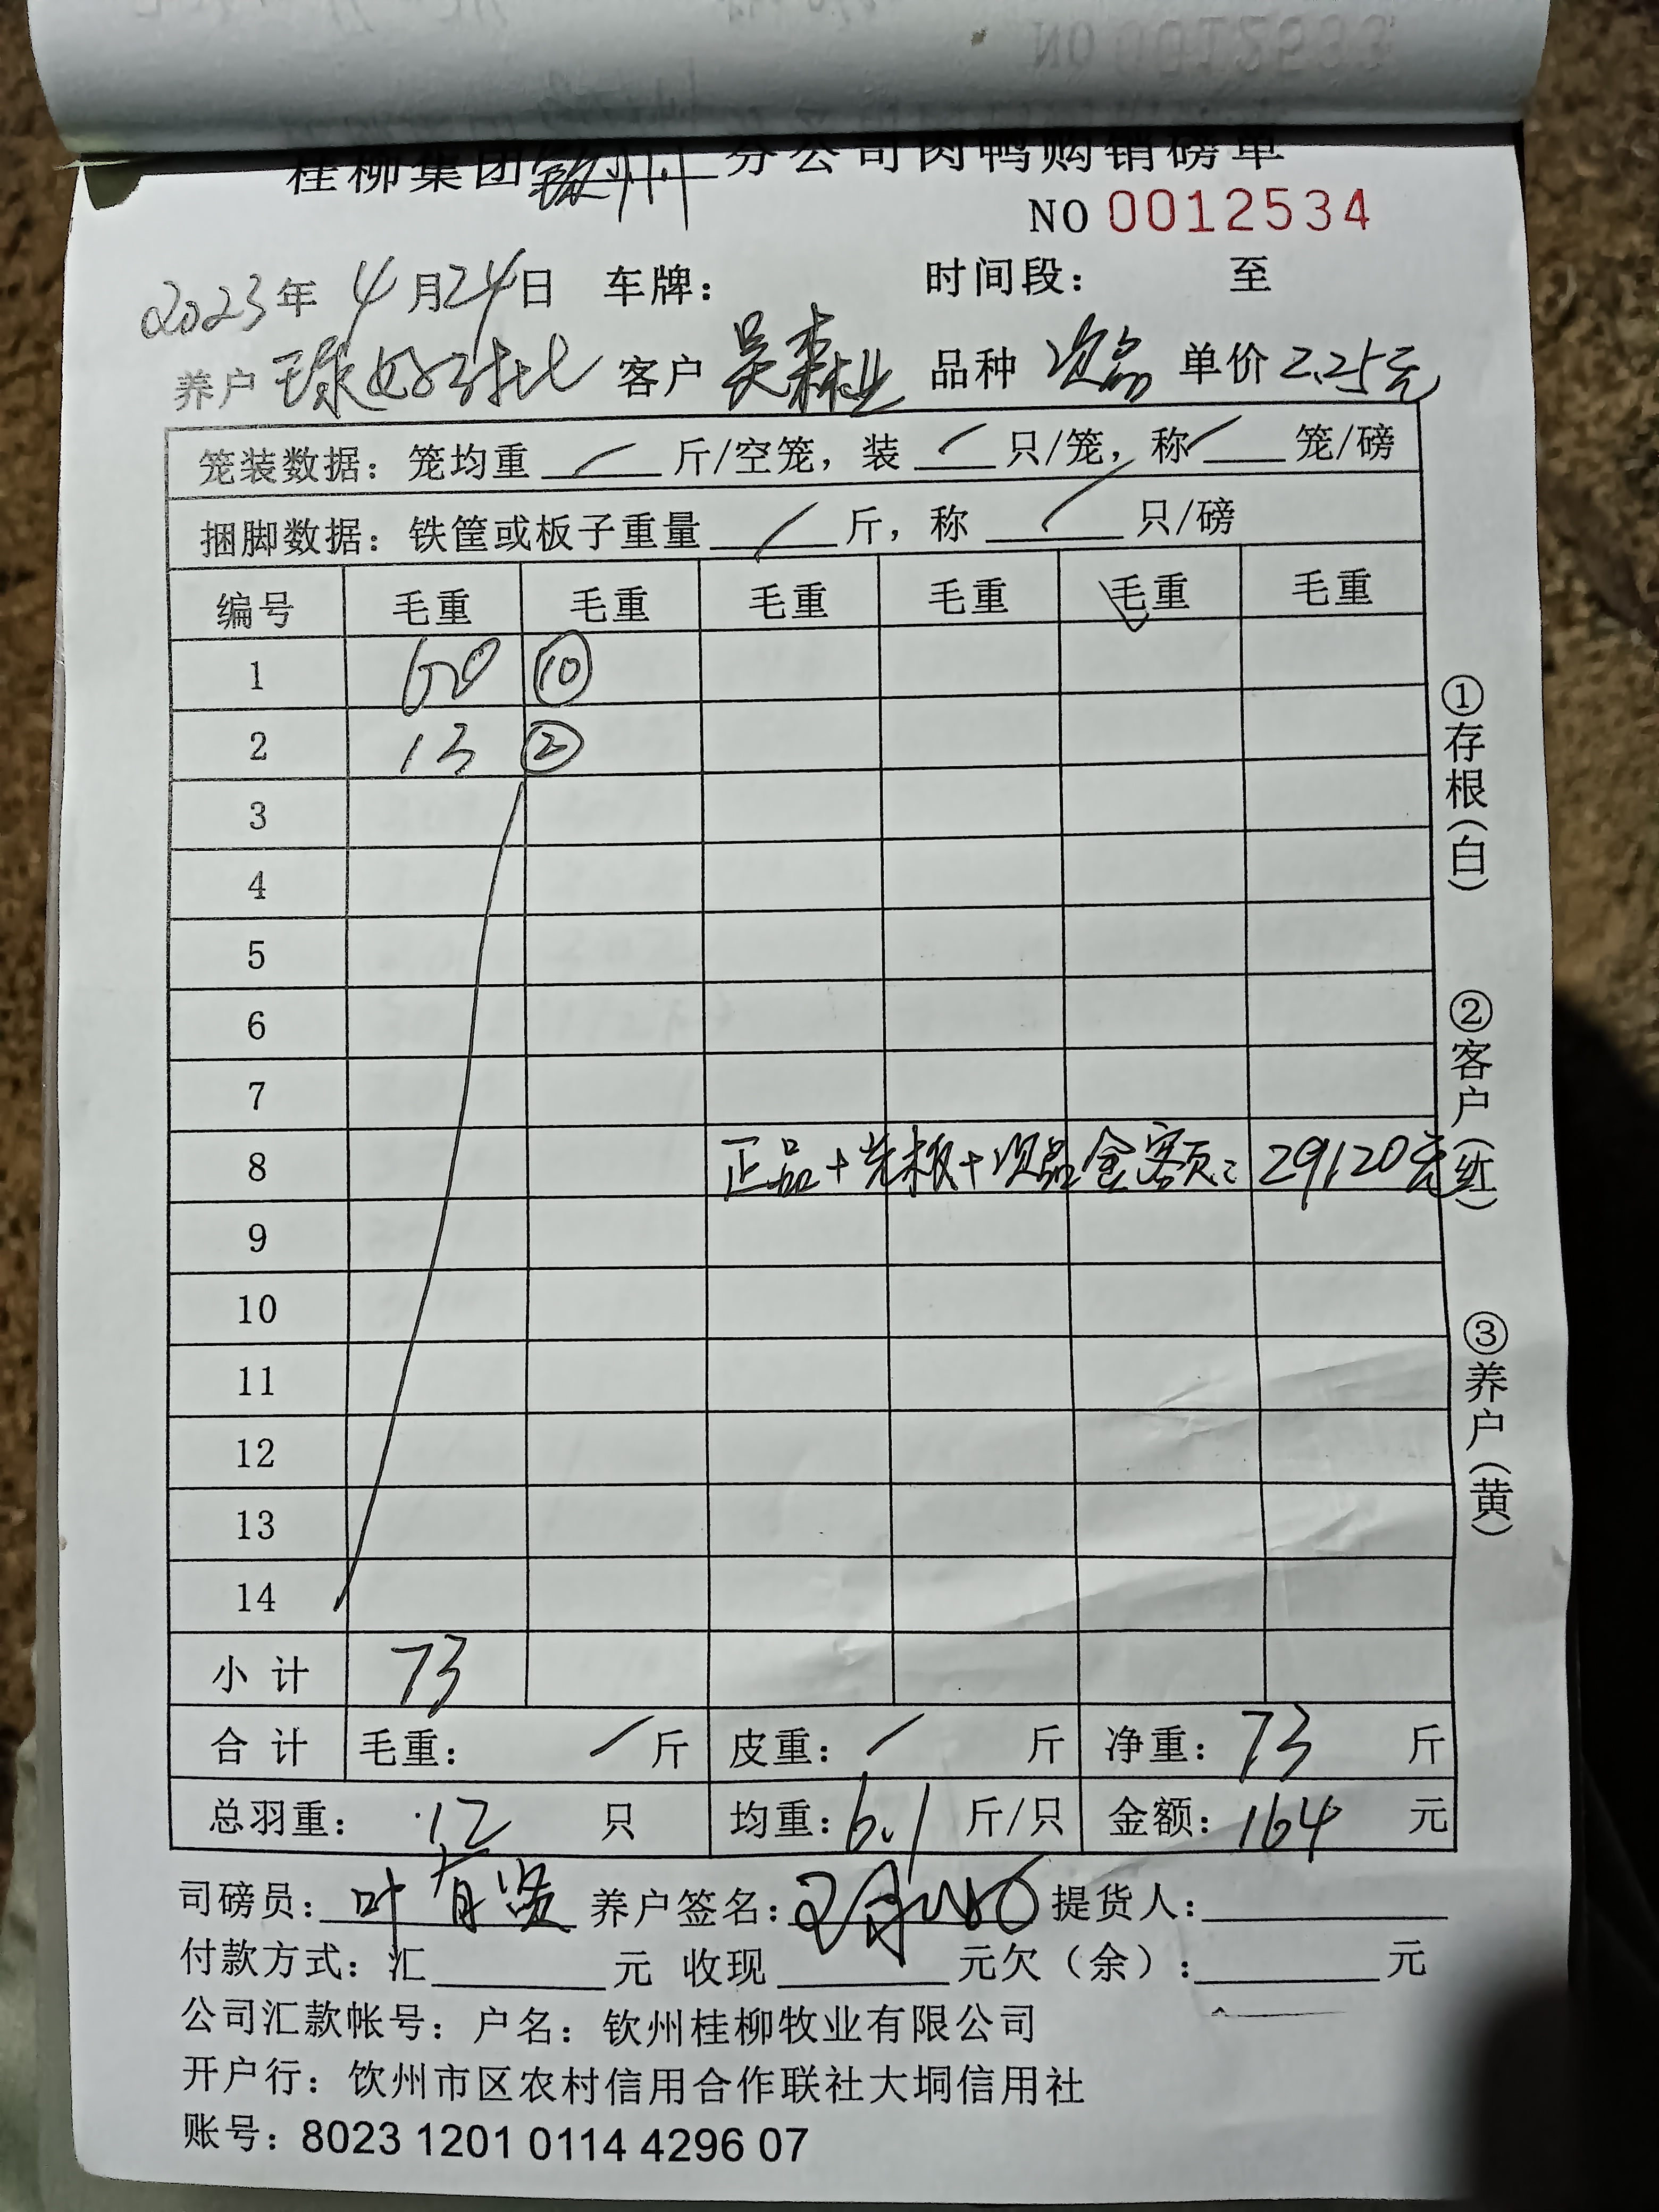 桂柳集团钦州分公司肉鸭购销磅单
NO 0012534
2023年4月24日 车牌： 时间段： 至
养户 客户 吴森业 品种 次品 单价 2.25元
笼装数据：笼均重 斤/空笼，装 只/笼，称 笼/磅
捆脚数据：铁筐或板子重量 斤，称 只/磅
编号 毛重 毛重 毛重 毛重 毛重 毛重
1 60 ⑩
2 13 ②
3
4
5
6
7
8 正品+光板+次品金额：29120元
9
10
11
12
13
14
小计 73
合计 毛重： 斤 皮重： 斤 净重：73 斤
总羽重：12 只 均重：6.1 斤/只 金额：164 元
司磅员：叶有 养户签名： 提货人：
付款方式：汇 元 收现 元欠（余）： 元
公司汇款帐号：户名：钦州桂柳牧业有限公司
开户行：钦州市区农村信用合作联社大垌信用社
账号：8023 1201 0114 4296 07
①存根（白）
②客户（红）
③养户（黄）